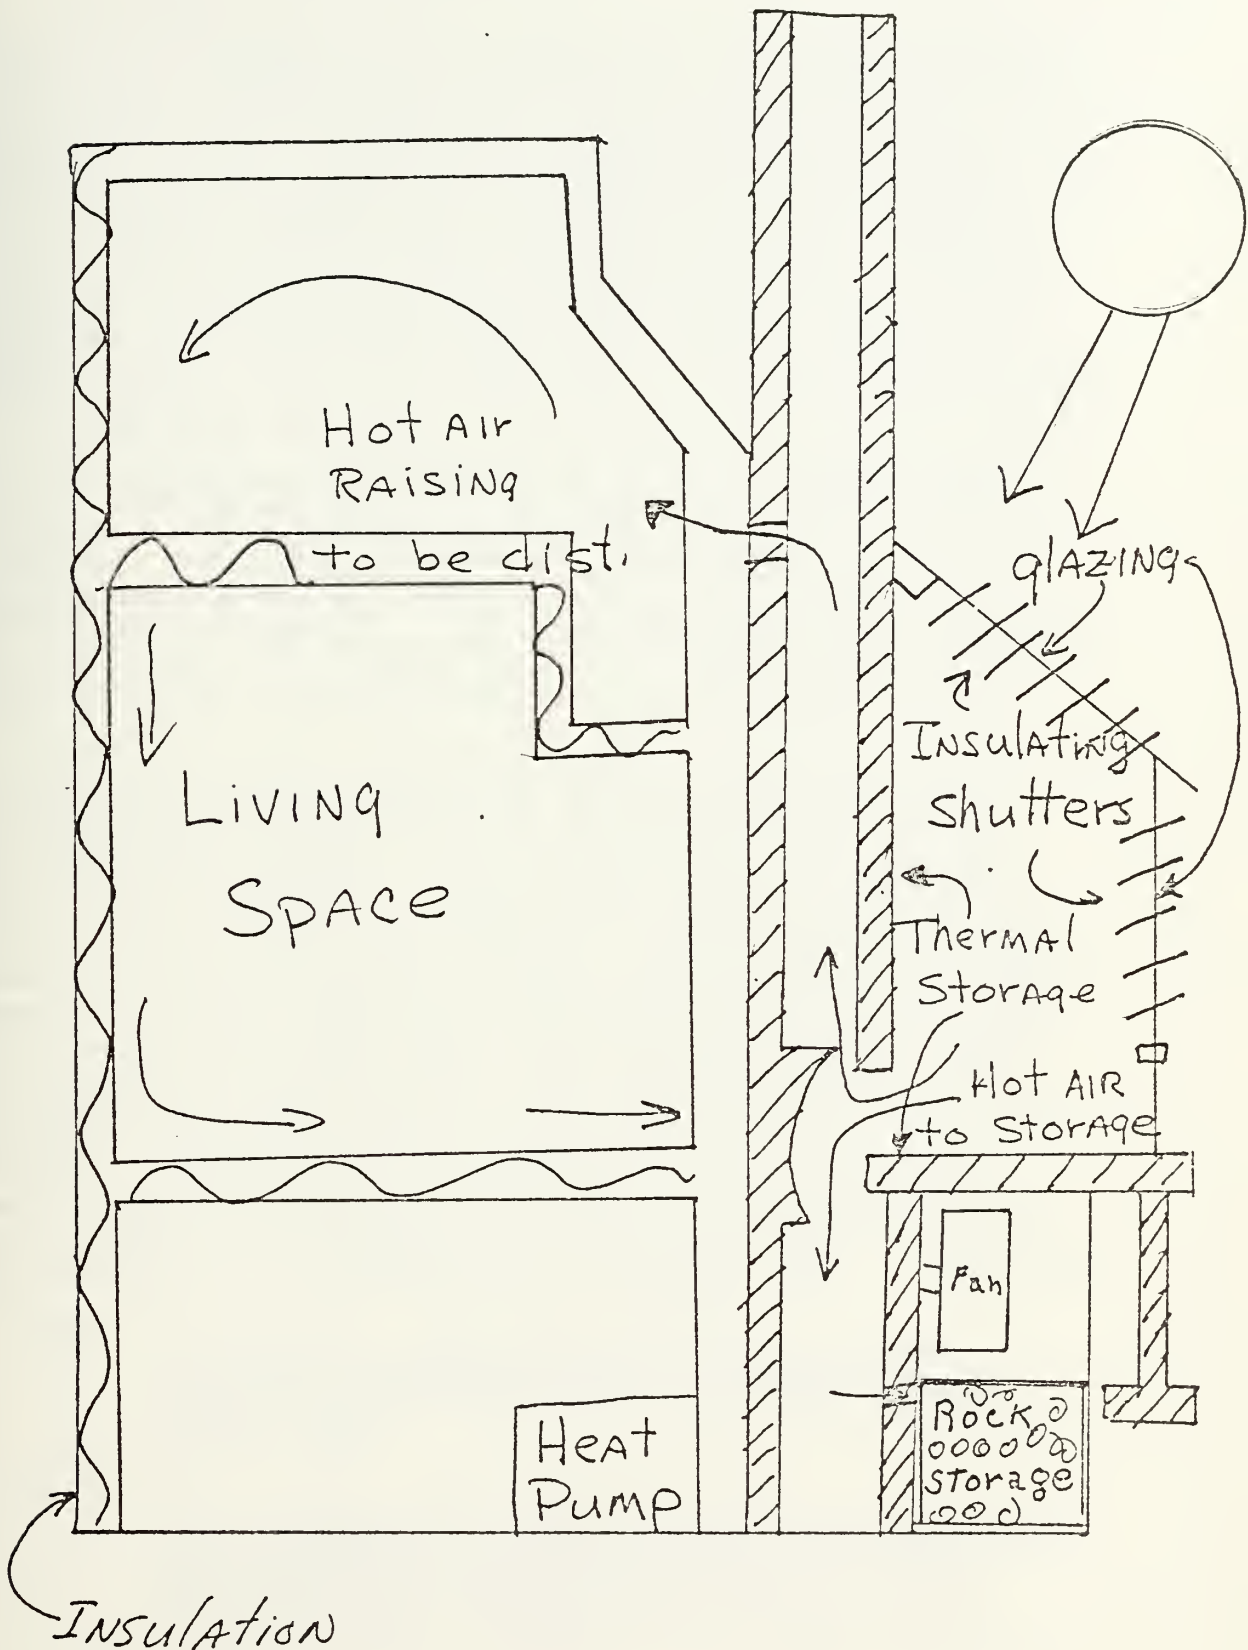 Hot Air
RAISING
to be dist.
glazing
Insulating
Shutters
Living
Space
Thermal
Storage
Hot AIR
to Storage
Fan
Rock
Storage
Heat
Pump
Insulation